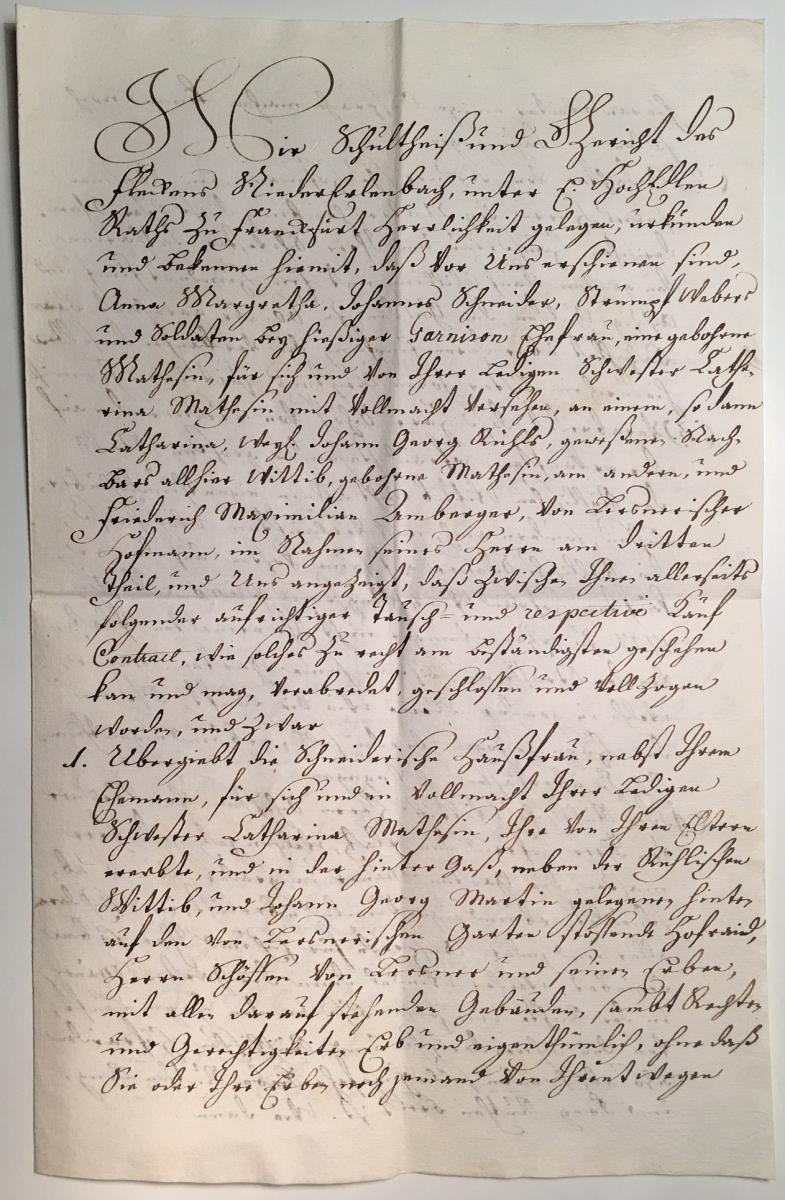 Wir Schultheiß und Gericht des
Fleckens NiederErlenbach, unter E. HochEdlen
Raths zu Franckfurt Herrlichkeit gelegen, urkunden
und bekennen hiemit, daß vor Uns erschienen sind,
Anna Margretha, Johannes Schneider, Strumpf Webers
und Soldaten bey hießiger Garnison Ehefrau, eine gebohrne
Mathesin, für sich und von Ihrer Ledigen Schwester Catha-
rina Mathesin mit Vollmacht versehen, an einem, so dann
Catharina, weyl. Johann Georg Rühls, geweßenen Nach-
bars allhier Wittib, gebohrne Mathesin, am andern, und
Friederich Maximilian Amberger, von Lersnerischer
Hofmann, im Nahmen seines Herrn am dritten
Theil, und Uns angezeigt, daß zwischen Ihnen allerseits
folgender aufrichtiger Tausch- und respective Kauf
Contract, wie solches zu recht am beständigsten geschehen
kan und mag, verabredet, geschlossen und vollzogen
worden, und zwar
1. Ubergiebt die Schneiderische Haußfrau, nebst Ihrem
Ehemann, für sich und in Vollmacht Ihrer Ledigen
Schwester Catharina Mathesin, Ihre von Ihren Eltern
ererbte, und in der hinter Gaß, neben der Rühlischen
Wittib, und Johann Georg Martin gelegenen hinten
auf den von Lersnerischen Garten stossende Hofraid,
Herrn Schöffen von Lersner und seinen Erben,
mit allen darauf stehenden Gebäuden, sambt Rechten
und Gerechtigkeiten Erb und eigenthümlich, ohne daß
Sie oder Ihre Erben noch jemand von Ihrentwegen